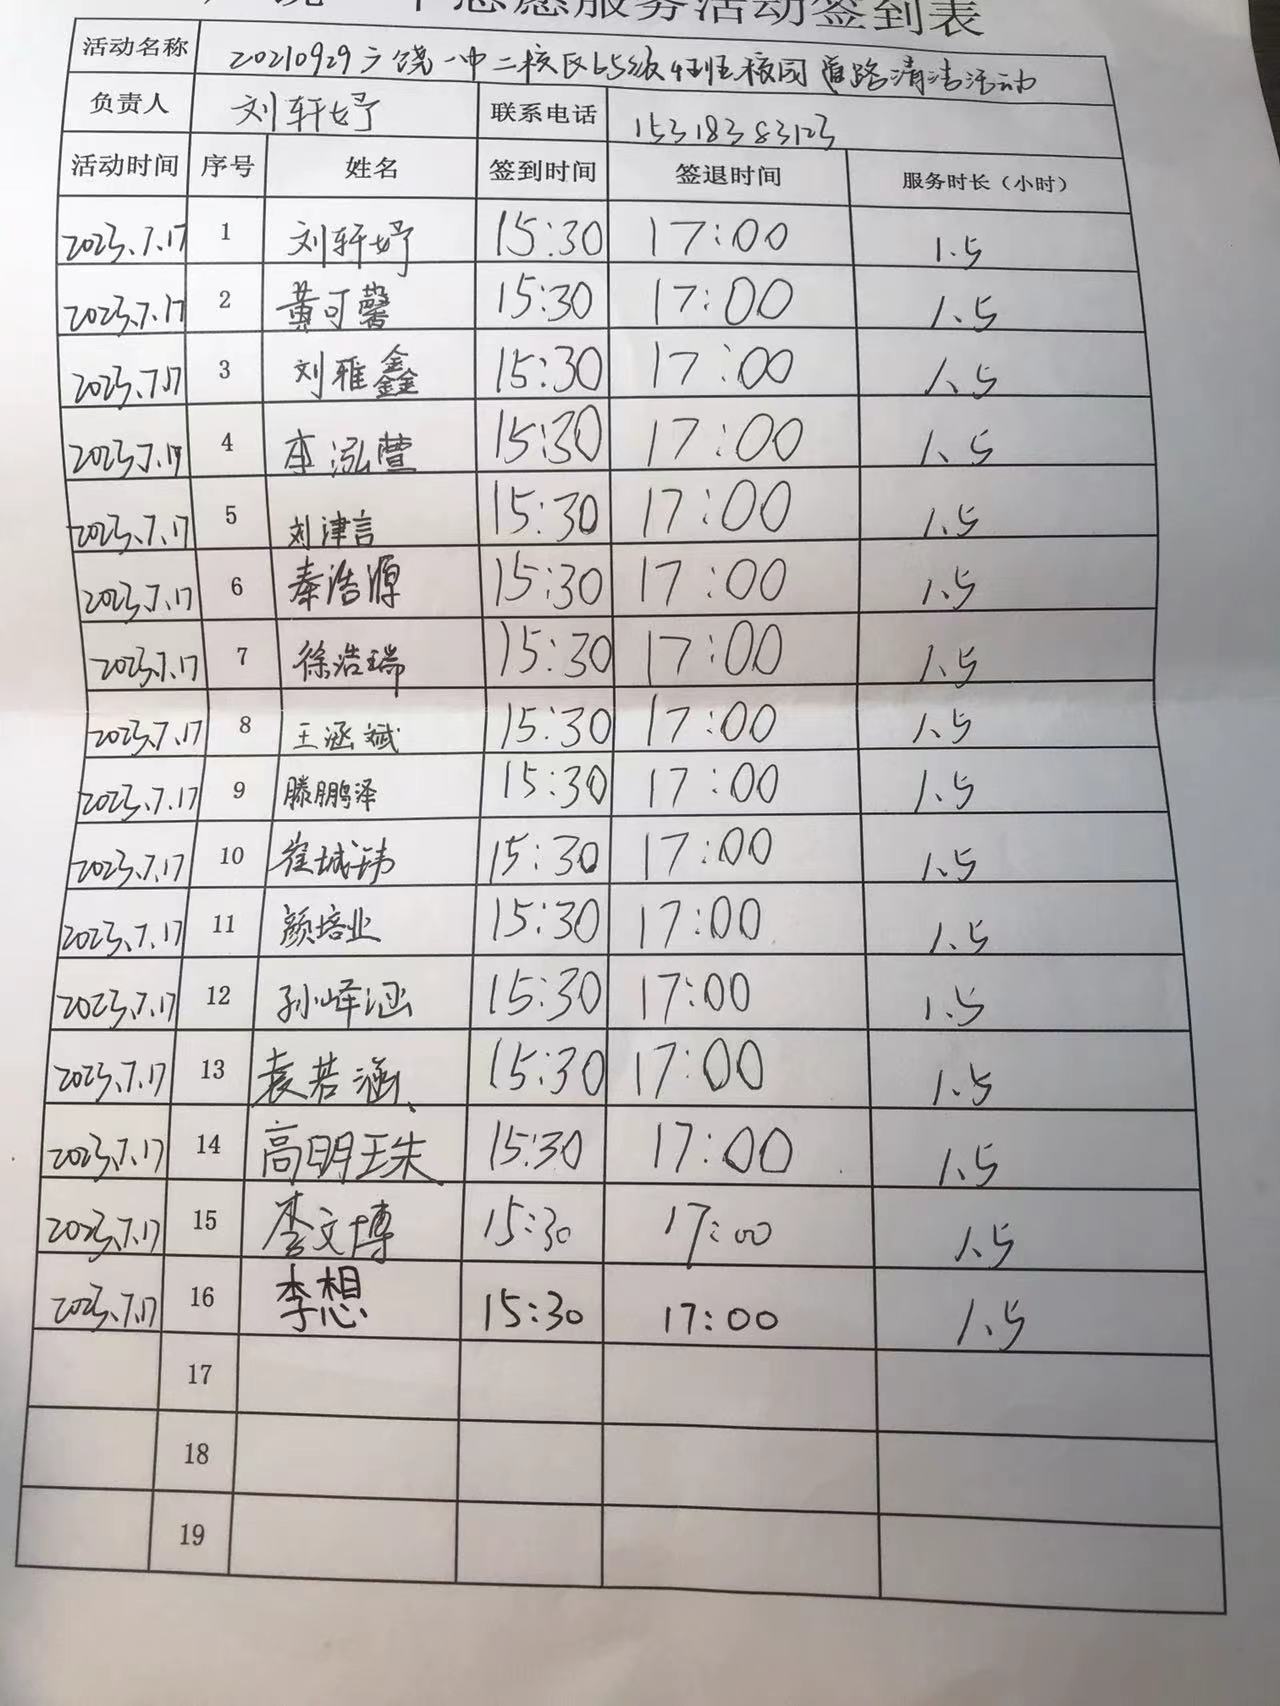 志愿服务活动签到表
活动名称 20210929广饶一中二校区65级4班班校园道路清洁活动
负责人 刘轩妤 联系电话 15318383123
活动时间 序号 姓名 签到时间 签退时间 服务时长（小时）
2023.7.17 1 刘轩妤 15:30 17:00 1.5
2023.7.17 2 黄可馨 15:30 17:00 1.5
2023.7.17 3 刘雅鑫 15:30 17:00 1.5
2023.7.17 4 李泓萱 15:30 17:00 1.5
2023.7.17 5 刘津言 15:30 17:00 1.5
2023.7.17 6 秦浩源 15:30 17:00 1.5
2023.7.17 7 徐浩瑞 15:30 17:00 1.5
2023.7.17 8 王涵斌 15:30 17:00 1.5
2023.7.17 9 滕鹏泽 15:30 17:00 1.5
2023.7.17 10 崔城玮 15:30 17:00 1.5
2023.7.17 11 颜培业 15:30 17:00 1.5
2023.7.17 12 孙峄涵 15:30 17:00 1.5
2023.7.17 13 袁若涵 15:30 17:00 1.5
2023.7.17 14 高明珠 15:30 17:00 1.5
2023.7.17 15 李文博 15:30 17:00 1.5
2023.7.17 16 李想 15:30 17:00 1.5
17
18
19